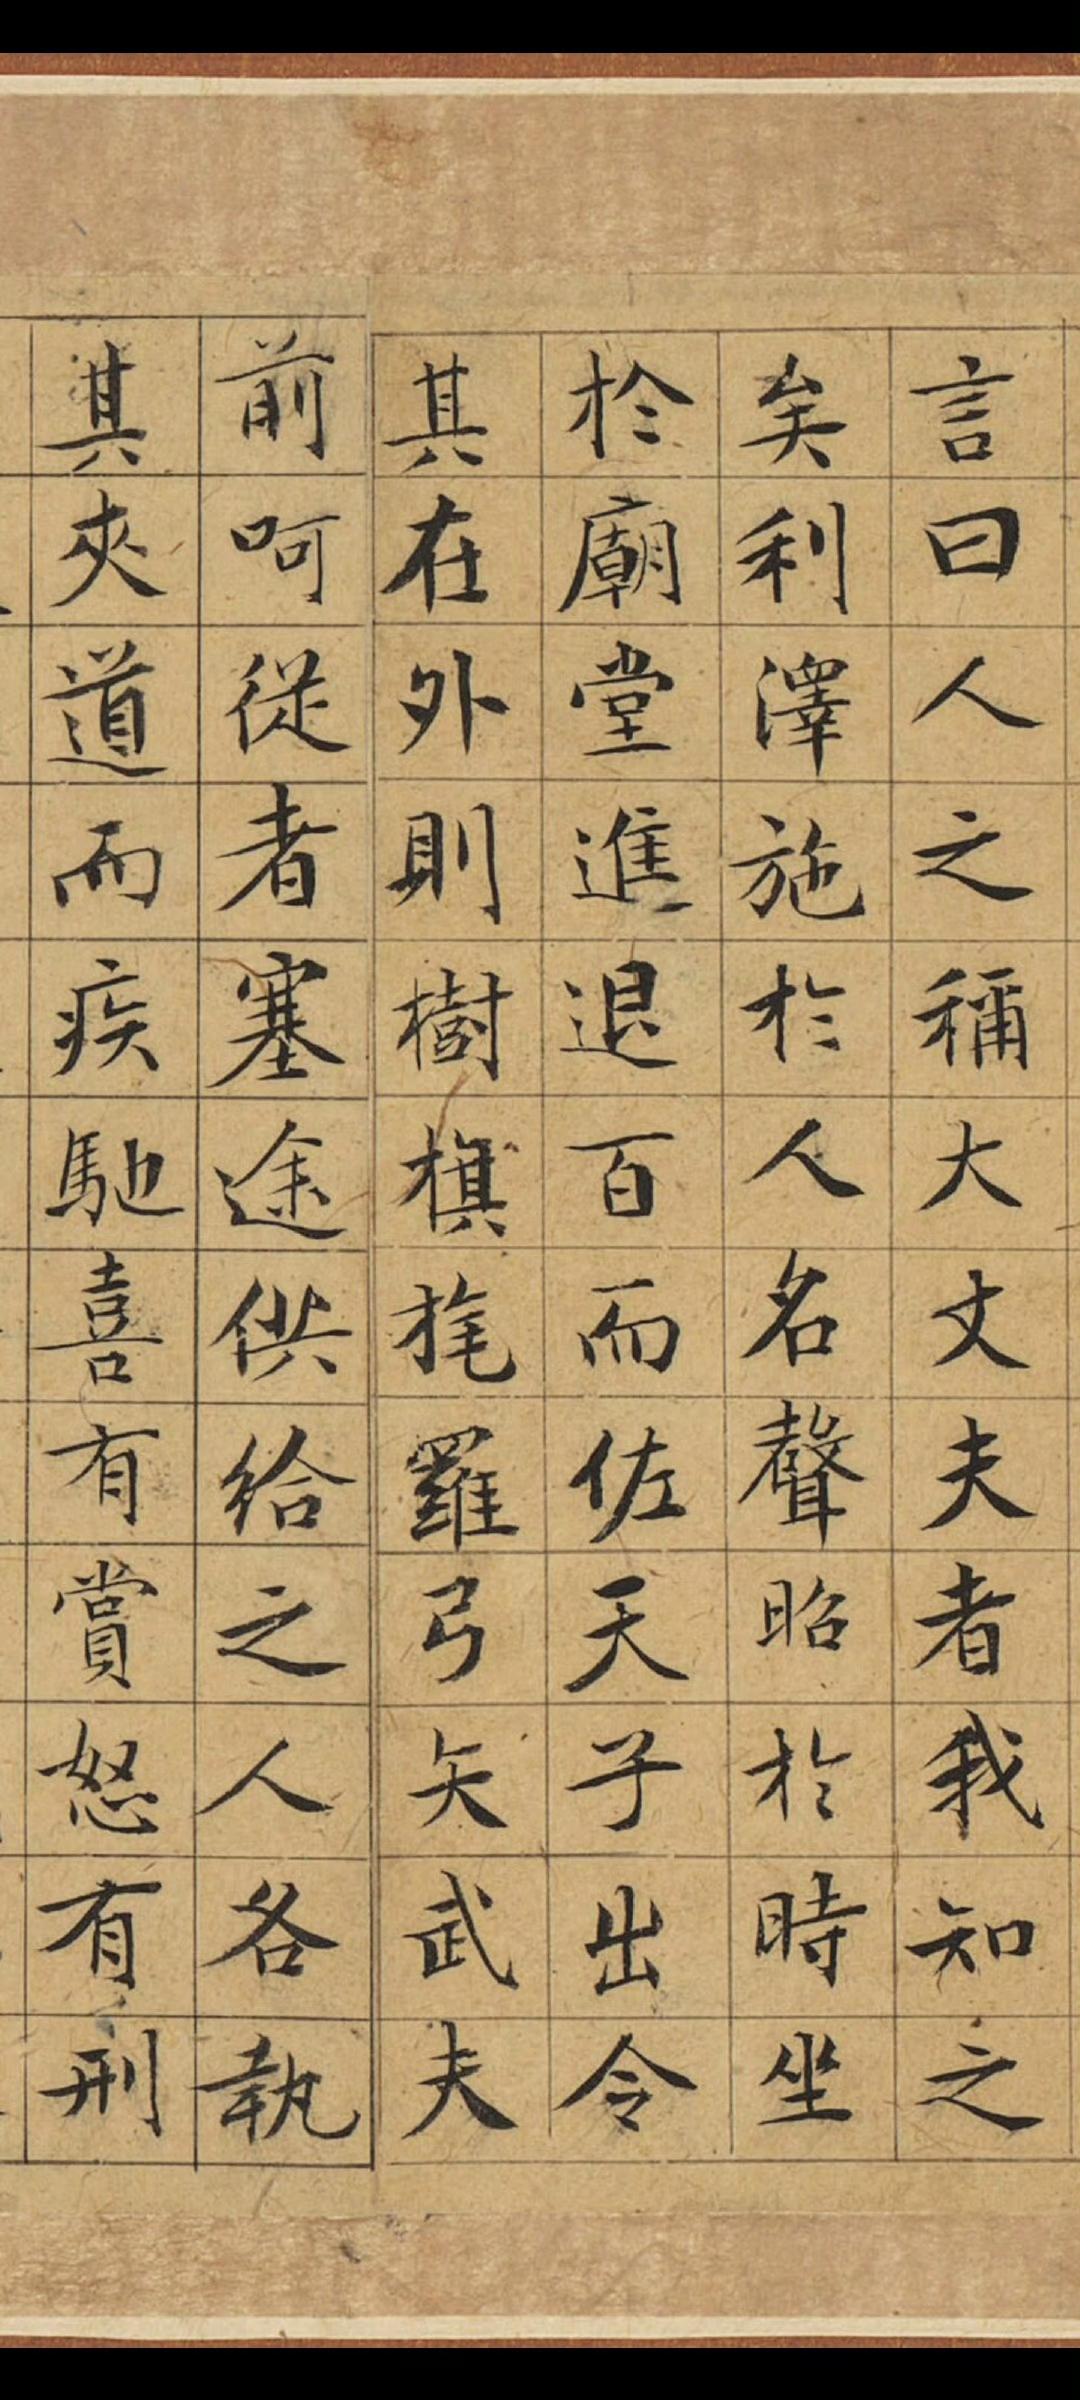 言曰人之稱大丈夫者我知之
矣利澤施於人名聲昭於時坐
於廟堂進退百而佐天子出令
其在外則樹旗旄羅弓矢武夫
前呵從者塞途供給之人各執
其夾道而疾馳喜有賞怒有刑